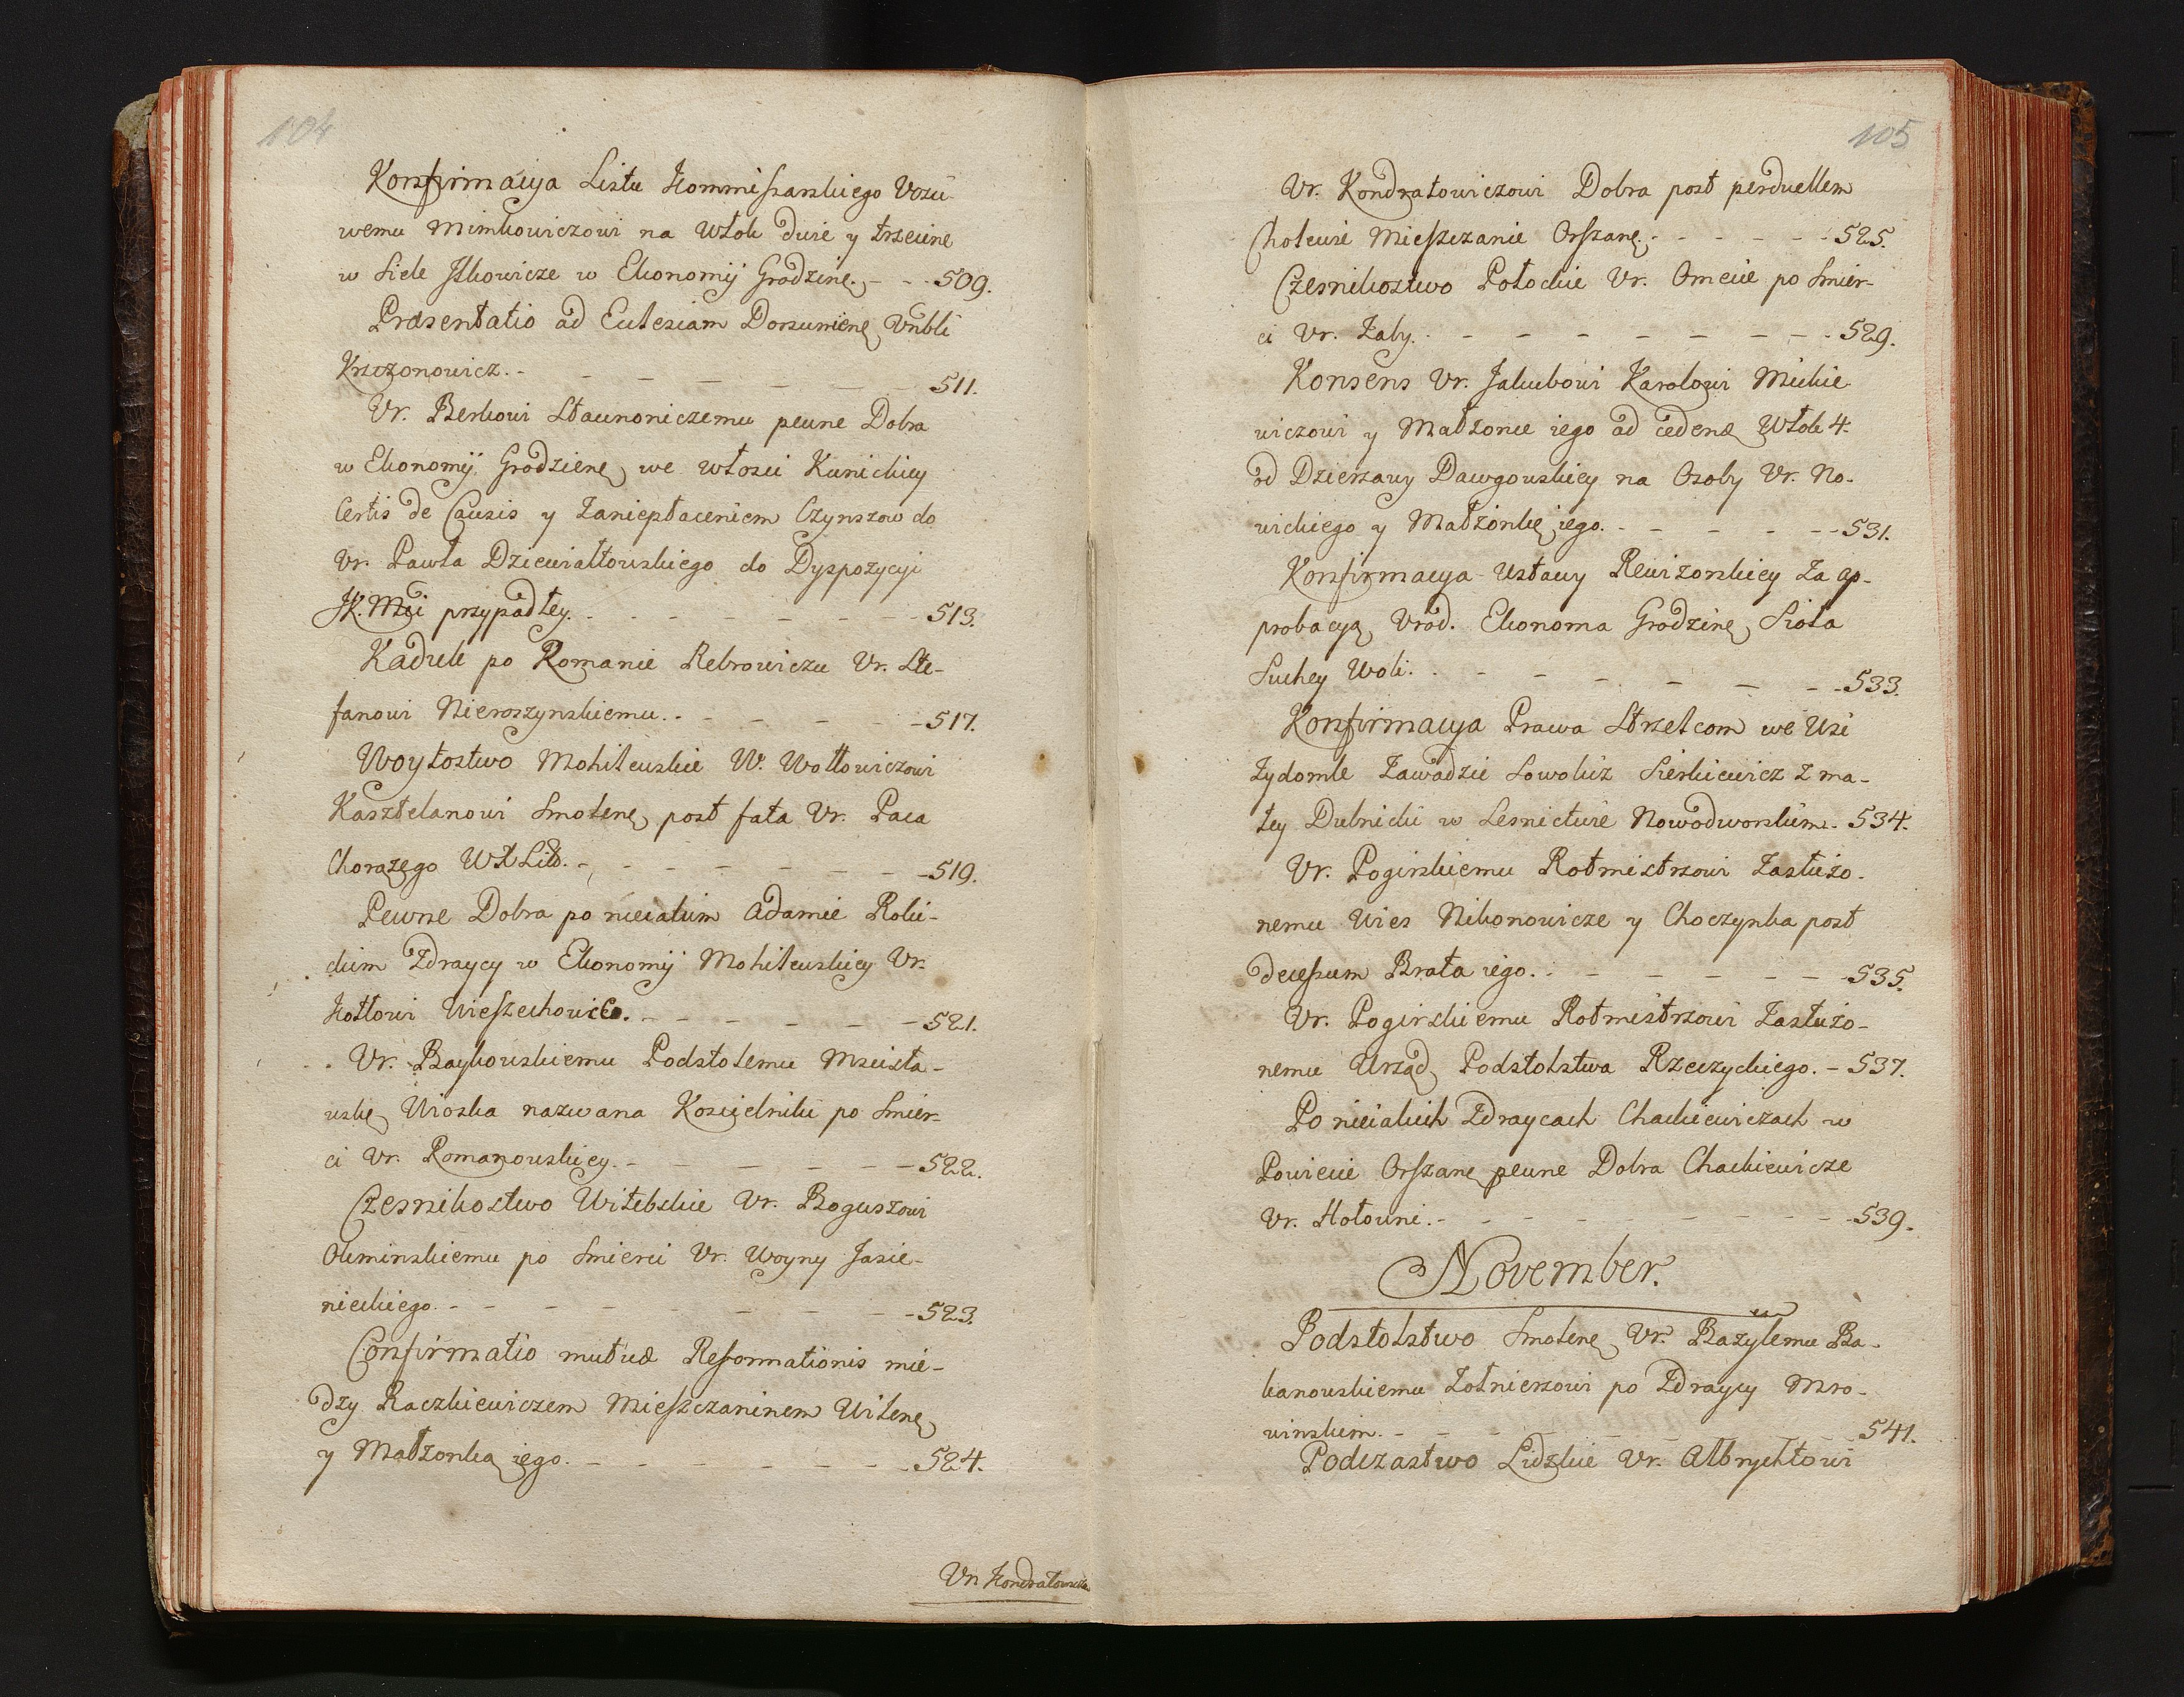 104
Konfirmacya Listu Kommissarskiego Urzu
wemu Mimkowiczowi na Włok dwie y trzecinę
w Siele Jłkowicze w Ekonomij Grodzinę. - - - 509.
Præsentatio ad Ecclesiam Dorsunienę Vnbli
Krsczonowicz. - - - - - - - 511.
Vr. Berkowi Stawnoniczemu pewne Dobra
w Ekonomij Grodzienę we włosci Kunickiey
Certis de Causis y Zaniepłaceniem Czynszow do
Vr. Pawła Dziewiałtowskiego do Dyspozycyi
JK. Mći przypadłey. - - - - - - - 513.
Kaduk po Romanie Rebrowiczu Vr. Ste-
fanowi Nieroszynskiemu. - - - - - 517.
Woytostwo Mohilewskie W. Wołłowiczowi
Kasztelanowi Smolenę post fata Vr. Paca
Chorążego WXLitt. - - - - - - - 519.
Pewne Dobra po nieiakim Adamie Roki-
ckim Zdraycy w Ekonomij Mohilewskiey Vr.
Kotłowi Wieszechowice. - - - - - - 521.
Vr. Baykowskiemu Podstolemu Mscisła-
wskę Wioska nazwana Koscielniki po Smier-
ci Vr. Romanowskiey. - - - - - - 522.
Czesnikostwo Witebskie Vr. Boguszowi
Okminskiemu po Smierci Vr. Woyny Jasie-
nieckiego. - - - - - - - - 523.
Confirmatio mutuæ Reformationis mie-
dzy Raczkiewiczem Mieszczaninem Wilenę
y Małżonką iego. - - - - - - - 524.
Vr. Kondratowiczo
105
Vr. Kondratowiczowi Dobra post perduellem
Chołewie Mieszczanie Orszanę. - - - - - 525.
Czesnikostwo Połockie Vr. Omecie po Smier-
ci Vr. Żaby. - - - - - - - - 529.
Konsens Vr. Jakubowi Karolowi Mickie
wiczowi y Małżonce iego ad cedenđ Włok 4.
od Dzierzawy Dawgowskiey na Osoby Vr. No-
wickiego y Małżonkę iego. - - - - - - 531.
Konfirmacya Ustawy Rewizorskiey Za ap-
probacyą Vrod. Ekonoma Grodzinę Sioła
Suchey Woli. - - - - - - - - 533.
Konfirmacya Prawa Strzelcom we Wsi
Żydomle Zawadzie Sowolicz Sierkiewicz z ma-
łey Dubnicki w Lesnictwie Nowodworskim. 534.
Vr. Pogirskiemu Rotmistrzowi Zasłużo-
nemu Wies Nikonowicze y Choczynka post
decessum Brata iego. - - - - - - - 535.
Vr. Pogirskiemu Rotmistrzowi Zasłużo-
nemu Urząd Podstolstwa Rzeczyckiego. - 537.
Po nieiakich Zdraycach Chackiewiczach w
Powiecie Orszanę pewne Dobra Chackiewicze
Vr. Hołowni. - - - - - - - - 539.
November.
Podstolstwo Smolenę Vr. Bazylemu Ba-
kanowskiemu Żołnierzowi po Zdraycy Mro-
winskim. - - - - - - - - 541.
Podczastwo Lidzkie Vr. Albrychtowi